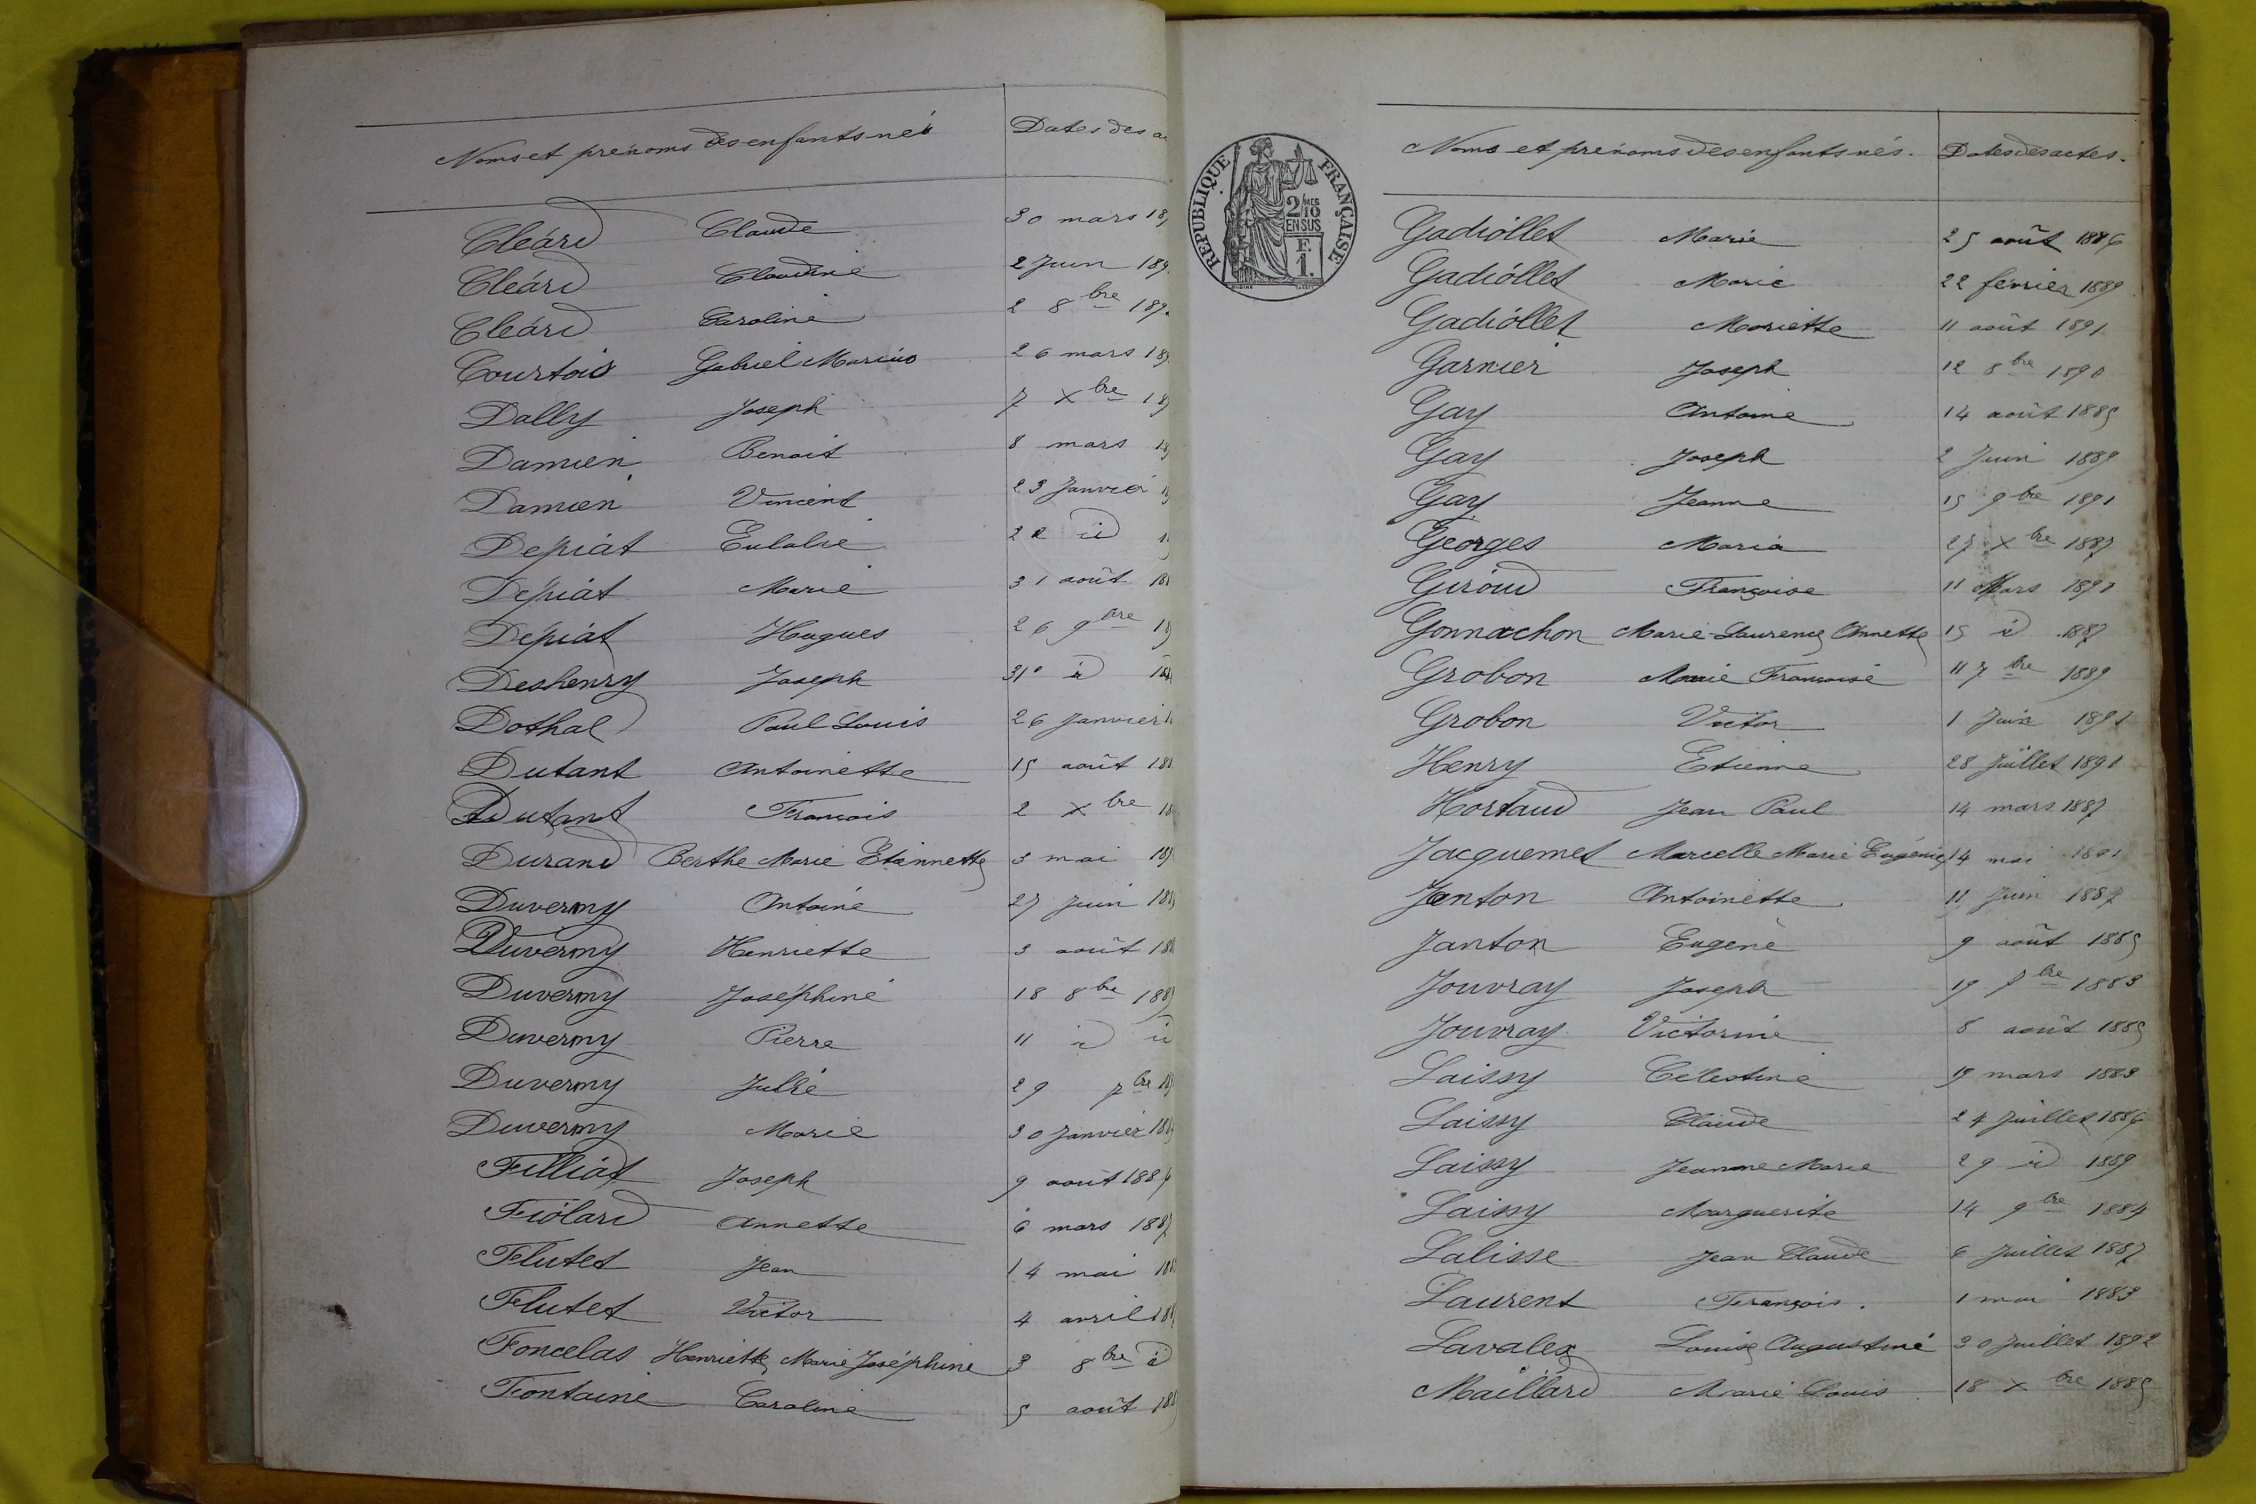 Noms et prénoms des enfants nés Dates des
Cleard Claude 30 mars
Cleard Claudine 2 Juin
Cleard Caroline 2 8bre
Courtois Gabriel Marius 26 mars
Dally Joseph 7 Xbre
Damien Benoit 8 mars
Damien Vincent 23 Janvier
Depiat Eulalie 22 id
Depiat Marie 31 août
Depiat Hugues 26 9bre
Deshenry Joseph 31 id
Dothal Paul Louis 26 Janvier
Dutant Antoinette 15 août
Dutant François 2 Xbre
Durand Berthe Marie Etiennette 3 mai
Duvermy Antoine 27 Juin
Duvermy Henriette 3 août
Duvermy Joséphine 18 8bre
Duvermy Pierre 11 id id
Duvermy Julie 29 7bre
Duvermy Marie 30 Janvier
Filliat Joseph 9 août
Fiolard Annette 6 mars 1887
Flutet Jean 14 mai
Flutet Victor 4 avril
Foncelas Henriette Marie Joséphine 3 8bre id
Fontaine Caroline 5 août
REPUBLIQUE FRANÇAISE
2/10 MES
EN SUS
F.
1.
Noms et prénoms des enfants nés. Dates des actes.
Gadiollet Marie 25 août 1886
Gadiollet Marie 22 février 1889
Gadiollet Mariette 11 août 1891
Garnier Joseph 12 8bre 1890
Gay Antoine 14 août 1885
Gay Joseph 2 Juin 1889
Gay Jeanne 15 9bre 1891
Georges Maria 27 Xbre 1887
Giroud Françoise 11 Mars
Gonnachon Marie Laurence Annette 15 id 1887
Grobon Marie Françoise 11 7bre 1889
Grobon Victor 1 Juin
Henry Etienne 28 Juillet 1891
Hortaud Jean Paul 14 mars 1887
Jacquemet Marcelle Marie Eugénie 14 mai 1891
Janton Antoinette 11 Juin 1887
Janton Eugène 9 août 1885
Jouvray Joseph 19 1883
Jouvray Victorine 8 août 1885
Laissy Célestine 19 mars 1883
Laissy Claude 24 Juillet 1886
Laissy Jeanne Marie 29 id 1889
Laissy Marguerite 14 9bre 1884
Lalisse Jean Claude 6 Juillet 1887
Laurent François. 1 mai 1883
Lavalex Louise Augustine 30 Juillet 1892
Maillard Marie Louis 18 Xbre 1885